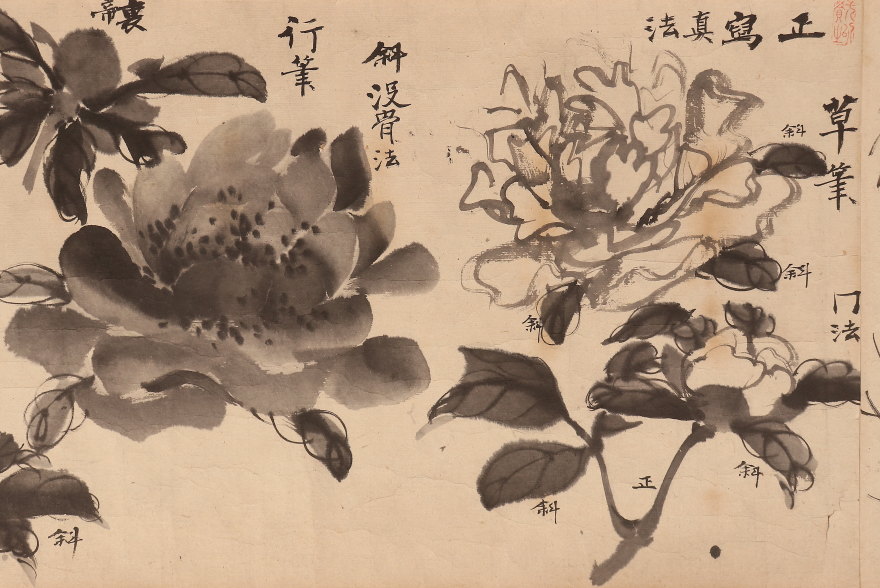 正寫真法
草筆
冂法
斜
斜
斜
斜
斜
正
斜没骨法
行筆
裏
斜